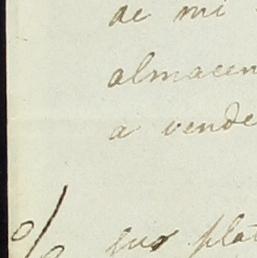 de mi
almacen
a vende
% sus plat